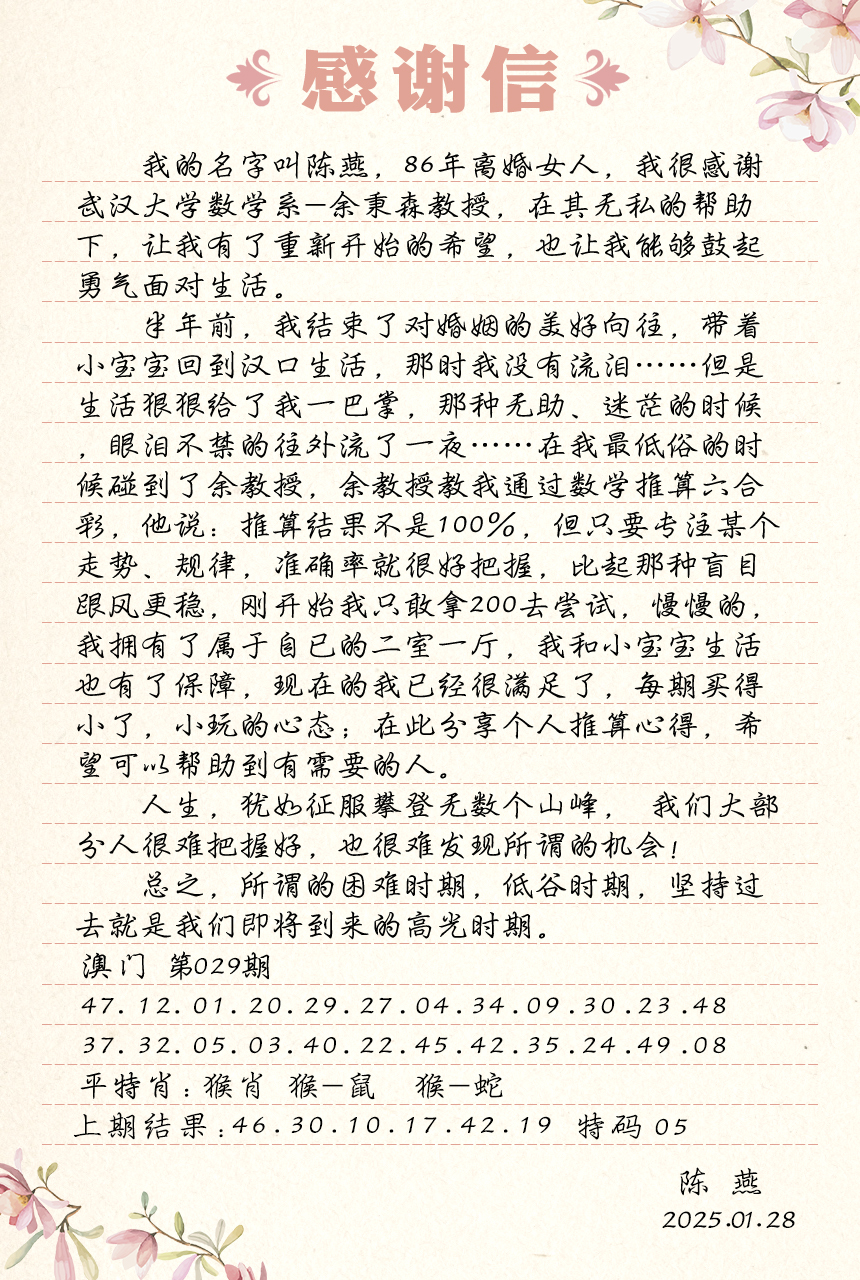 感谢信
我的名字叫陈燕，86年离婚女人，我很感谢
武汉大学数学系—余秉森教授，在其无私的帮助
下，让我有了重新开始的希望，也让我能够鼓起
勇气面对生活。
半年前，我结束了对婚姻的美好向往，带着
小宝宝回到汉口生活，那时我没有流泪……但是
生活狠狠给了我一巴掌，那种无助、迷茫的时候
，眼泪不禁的往外流了一夜……在我最低俗的时
候碰到了余教授，余教授教我通过数学推算六合
彩，他说：推算结果不是100%，但只要专注某个
走势、规律，准确率就很好把握，比起那种盲目
跟风更稳，刚开始我只敢拿200去尝试，慢慢的，
我拥有了属于自已的二室一厅，我和小宝宝生活
也有了保障，现在的我已经很满足了，每期买得
小了，小玩的心态；在此分享个人推算心得，希
望可以帮助到有需要的人。
人生，犹如征服攀登无数个山峰， 我们大部
分人很难把握好，也很难发现所谓的机会！
总之，所谓的困难时期，低谷时期，坚持过
去就是我们即将到来的高光时期。
澳门 第029期
47.12.01.20.29.27.04.34.09.30.23.48
37.32.05.03.40.22.45.42.35.24.49.08
平特肖：猴肖 猴—鼠 猴—蛇
上期结果：46.30.10.17.42.19 特码 05
陈 燕
2025.01.28